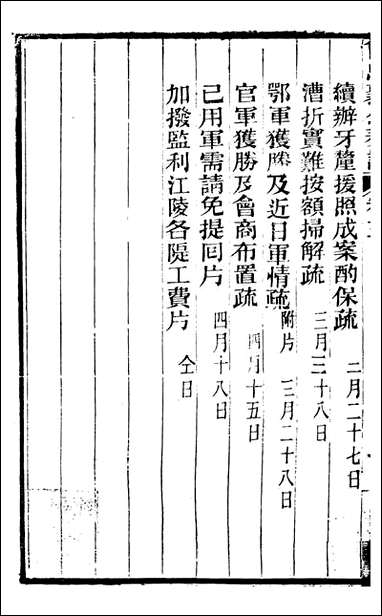 續辦牙釐援照成案酌保疏 二月二十七日
漕折實難按額掃解疏 三月二十八日
鄂軍獲勝及近日軍情疏 附片 三月二十八日
官軍獲勝及會商布置疏 四月十五日
已用軍需請免提回片 四月十八日
加撥監利江陵各隄工費片 仝日